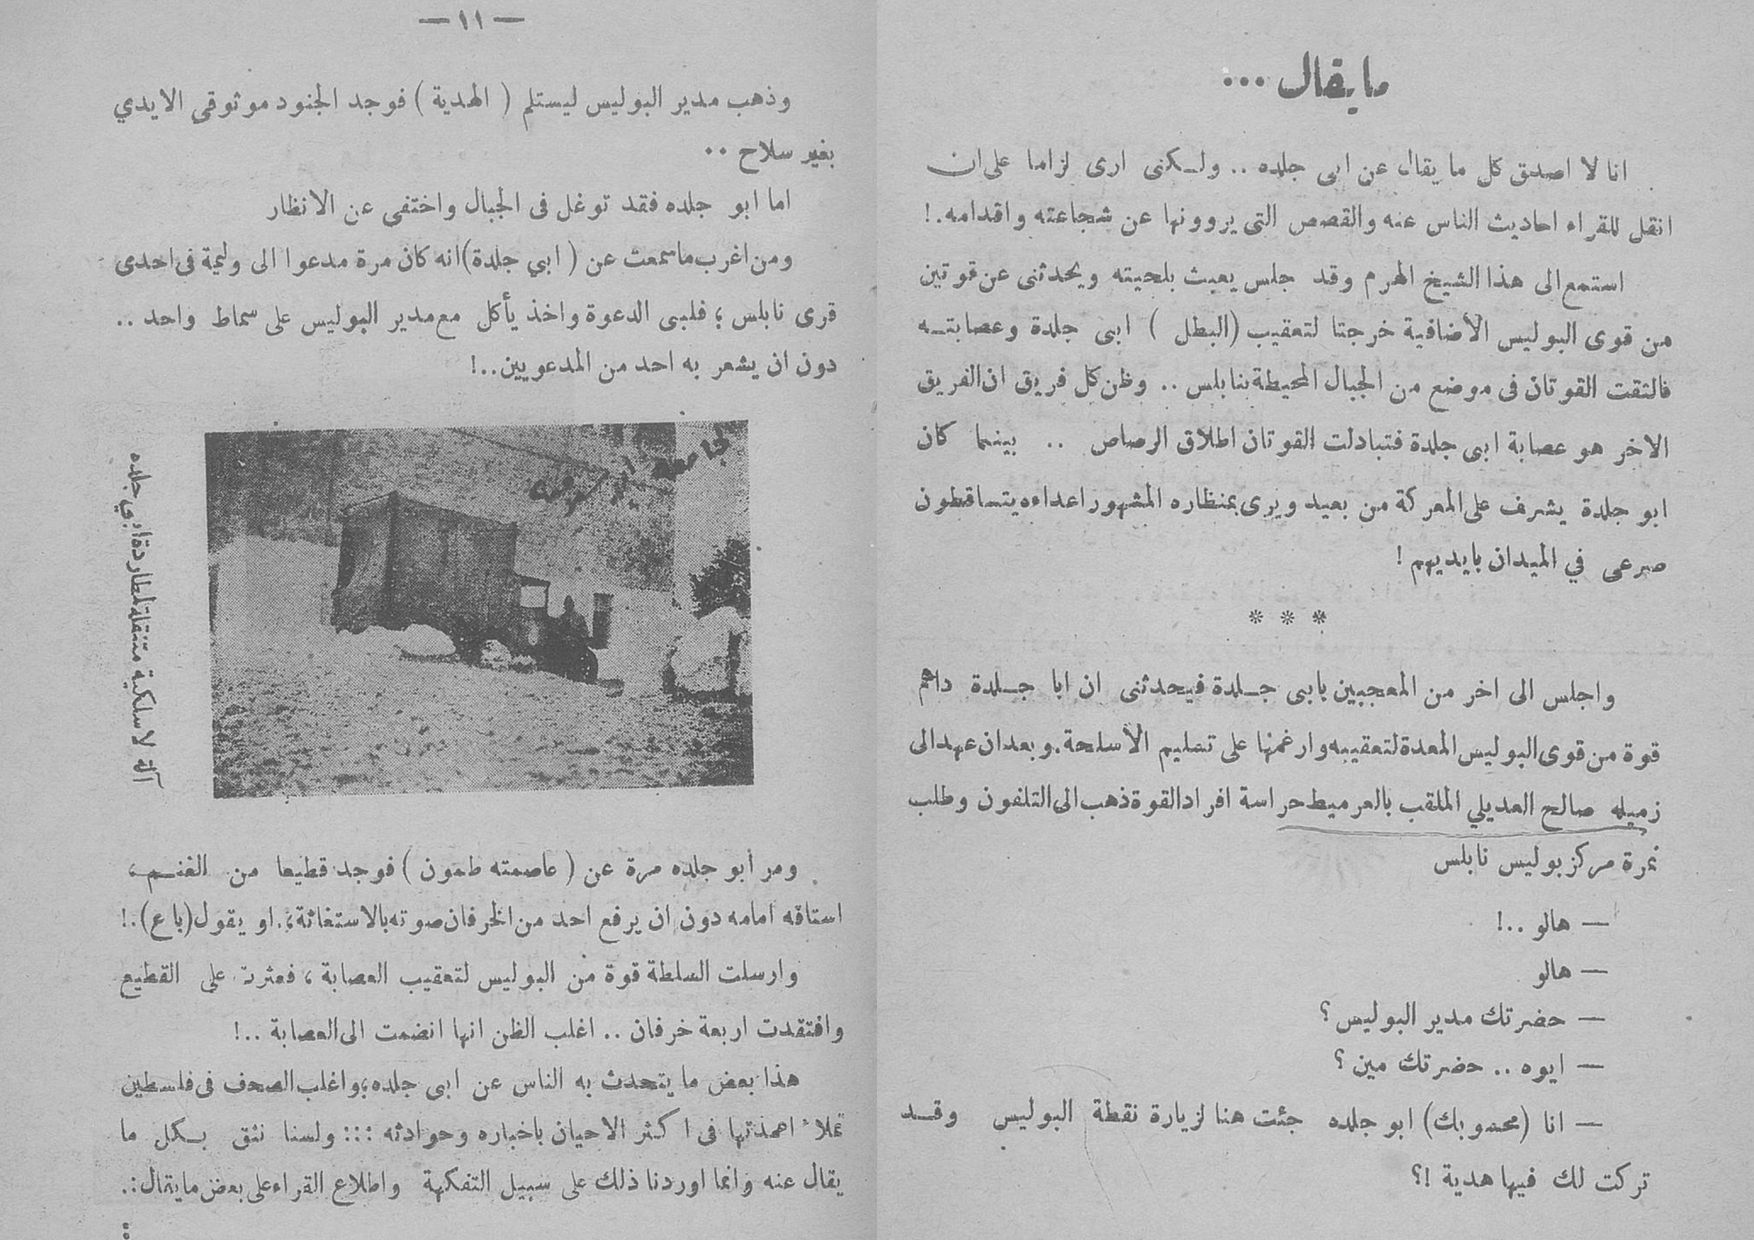 ما يقال ...
انا لا اصدق كل ما يقال عن ابى جلده .. ولكنى ارى لزاما على ان
انقل للقراء احاديث الناس عنه والقصص التى يروونها عن شجاعته واقدامه.!
استمع الى هذا الشيخ الهرم وقد جلس يعبث بلحيته ويحدثنى عن قوتين
من قوى البوليس الأضافية خرجتا لتعقيب (البطل ) ابى جلدة وعصابتـه
فالتقت القوتان فى موضع من الجبال المحيطة بنابلس .. وظن كل فريق ان الفريق
الاخر هو عصابة ابى جلدة فتبادلت القوتان اطلاق الرصاص .. بينما كان
ابو جلدة يشرف على المعركة من بعيد ويرى بمنظاره المشهور اعداءه يتساقطون
صرعى في الميدان بايديهم !
* * *
واجلس الى اخر من المعجبين بابى جـلدة فيحدثنى ان ابا جـلدة داهم
قوة من قوى البوليس المعدة لتعقيبه وارغمها على تسليم الأسلحة. وبعد ان عهد الى
زميله صالح العديلي الملقب بالعرميط حراسة افراد القوة ذهب الى التلفون وطلب
نمرة مركز بوليس نابلس
— هالو ..!
— هالو
— حضرتك مدير البوليس ؟
— ايوه .. حضرتك مين ؟
— انا (محسوبك) ابو جلده جئت هنا لزيارة نقطة البوليس وقـد
تركت لك فيها هدية !؟
— ١١ —
وذهب مدير البوليس ليستلم ( الهدية ) فوجد الجنود موثوقى الايدي
بغير سلاح ..
اما ابو جلده فقد توغل فى الجبال واختفى عن الانظار
ومن اغرب ما سمعت عن ( ابي جلدة) انه كان مرة مدعوا الى وليمة فى احدى
قرى نابلس ؛ فلبى الدعوة واخذ يأكل مع مدير البوليس على سماط واحد ..
دون ان يشعر به احد من المدعويين..!
آلة لا سلكية متنقلة لمطاردة ابي جلده
ومر أبو جلده مرة عن ( عاصمته طمون ) فوجد قطيعا من الغنـم،
استاقه امامه دون ان يرفع احد من الخرفان صوته بالاستغاثة؛. او يقول (باع).!
وارسلت السلطة قوة من البوليس لتعقيب العصابة ، فعثرت على القطيع
وافتقدت اربعة خرفان .. اغلب الظن انها انضمت الى العصابة ..!
هذا بعض ما يتحدث به الناس عن ابى جلده؛ واغلب الصحف فى فلسطين
تملاء اعمدتها فى اكثر الاحيان باخباره وحوادثه ::: ولسنا نثق بـكل ما
يقال عنه وانما اوردنا ذلك على سبيل التفكهة واطلاع القراء على بعض ما يقال:.